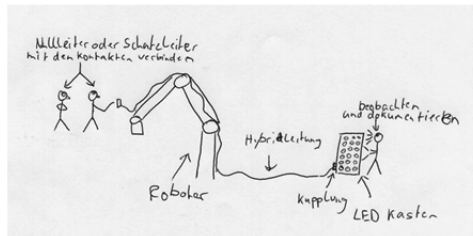 Nullleiter oder Schutzleiter
mit den Kontakten verbinden
beobachten
und dokumentieren
Hybridleitung
Roboter
Kupplung
LED Kasten